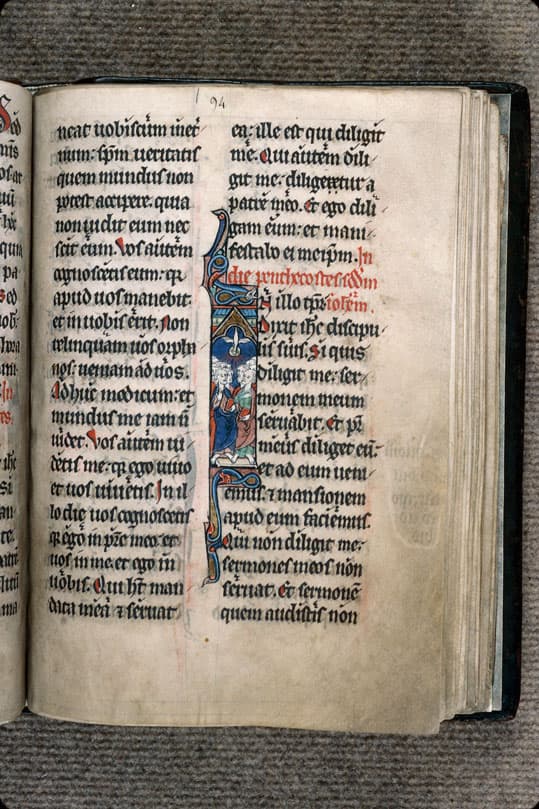 94
neat uobiscum in et
num: spm ueritatis
quem mundus non
potest accipere. quia
non uidit eum nec
scit eum. Vos autem
cognoscetis eum: qr
apud uos manebit:
et in uobis erit. Non
relinquam uos orpha
nos: ueniam ad uos.
Adhuc modicum: et
mundus me iam n
uidet. Vos autem ui
detis me: qr ego uiuo
et uos uiuetis. In il
lo die uos cognoscetis
qr ego in pre meo: et
uos in me. et ego in
uobis. Qui ht man
data mea 7 seruat
ea: ille est qui diligit
me. Qui autem dili
git me: diligetur a
patre meo. Et ego dili
gam eum: et mani
festabo ei meipm. In
die penthecostes. scdm
In illo tpr iohem.
Dixit ihc discipu
lis suis. Si quis
diligit me: ser
monem meum
seruabit. Et pr
meus diliget eu:
et ad eum ueni
emus. 7 mansionem
apud eum faciemus.
Qui non diligit me:
sermones meos non
seruat. Et sermone
quem audistis non